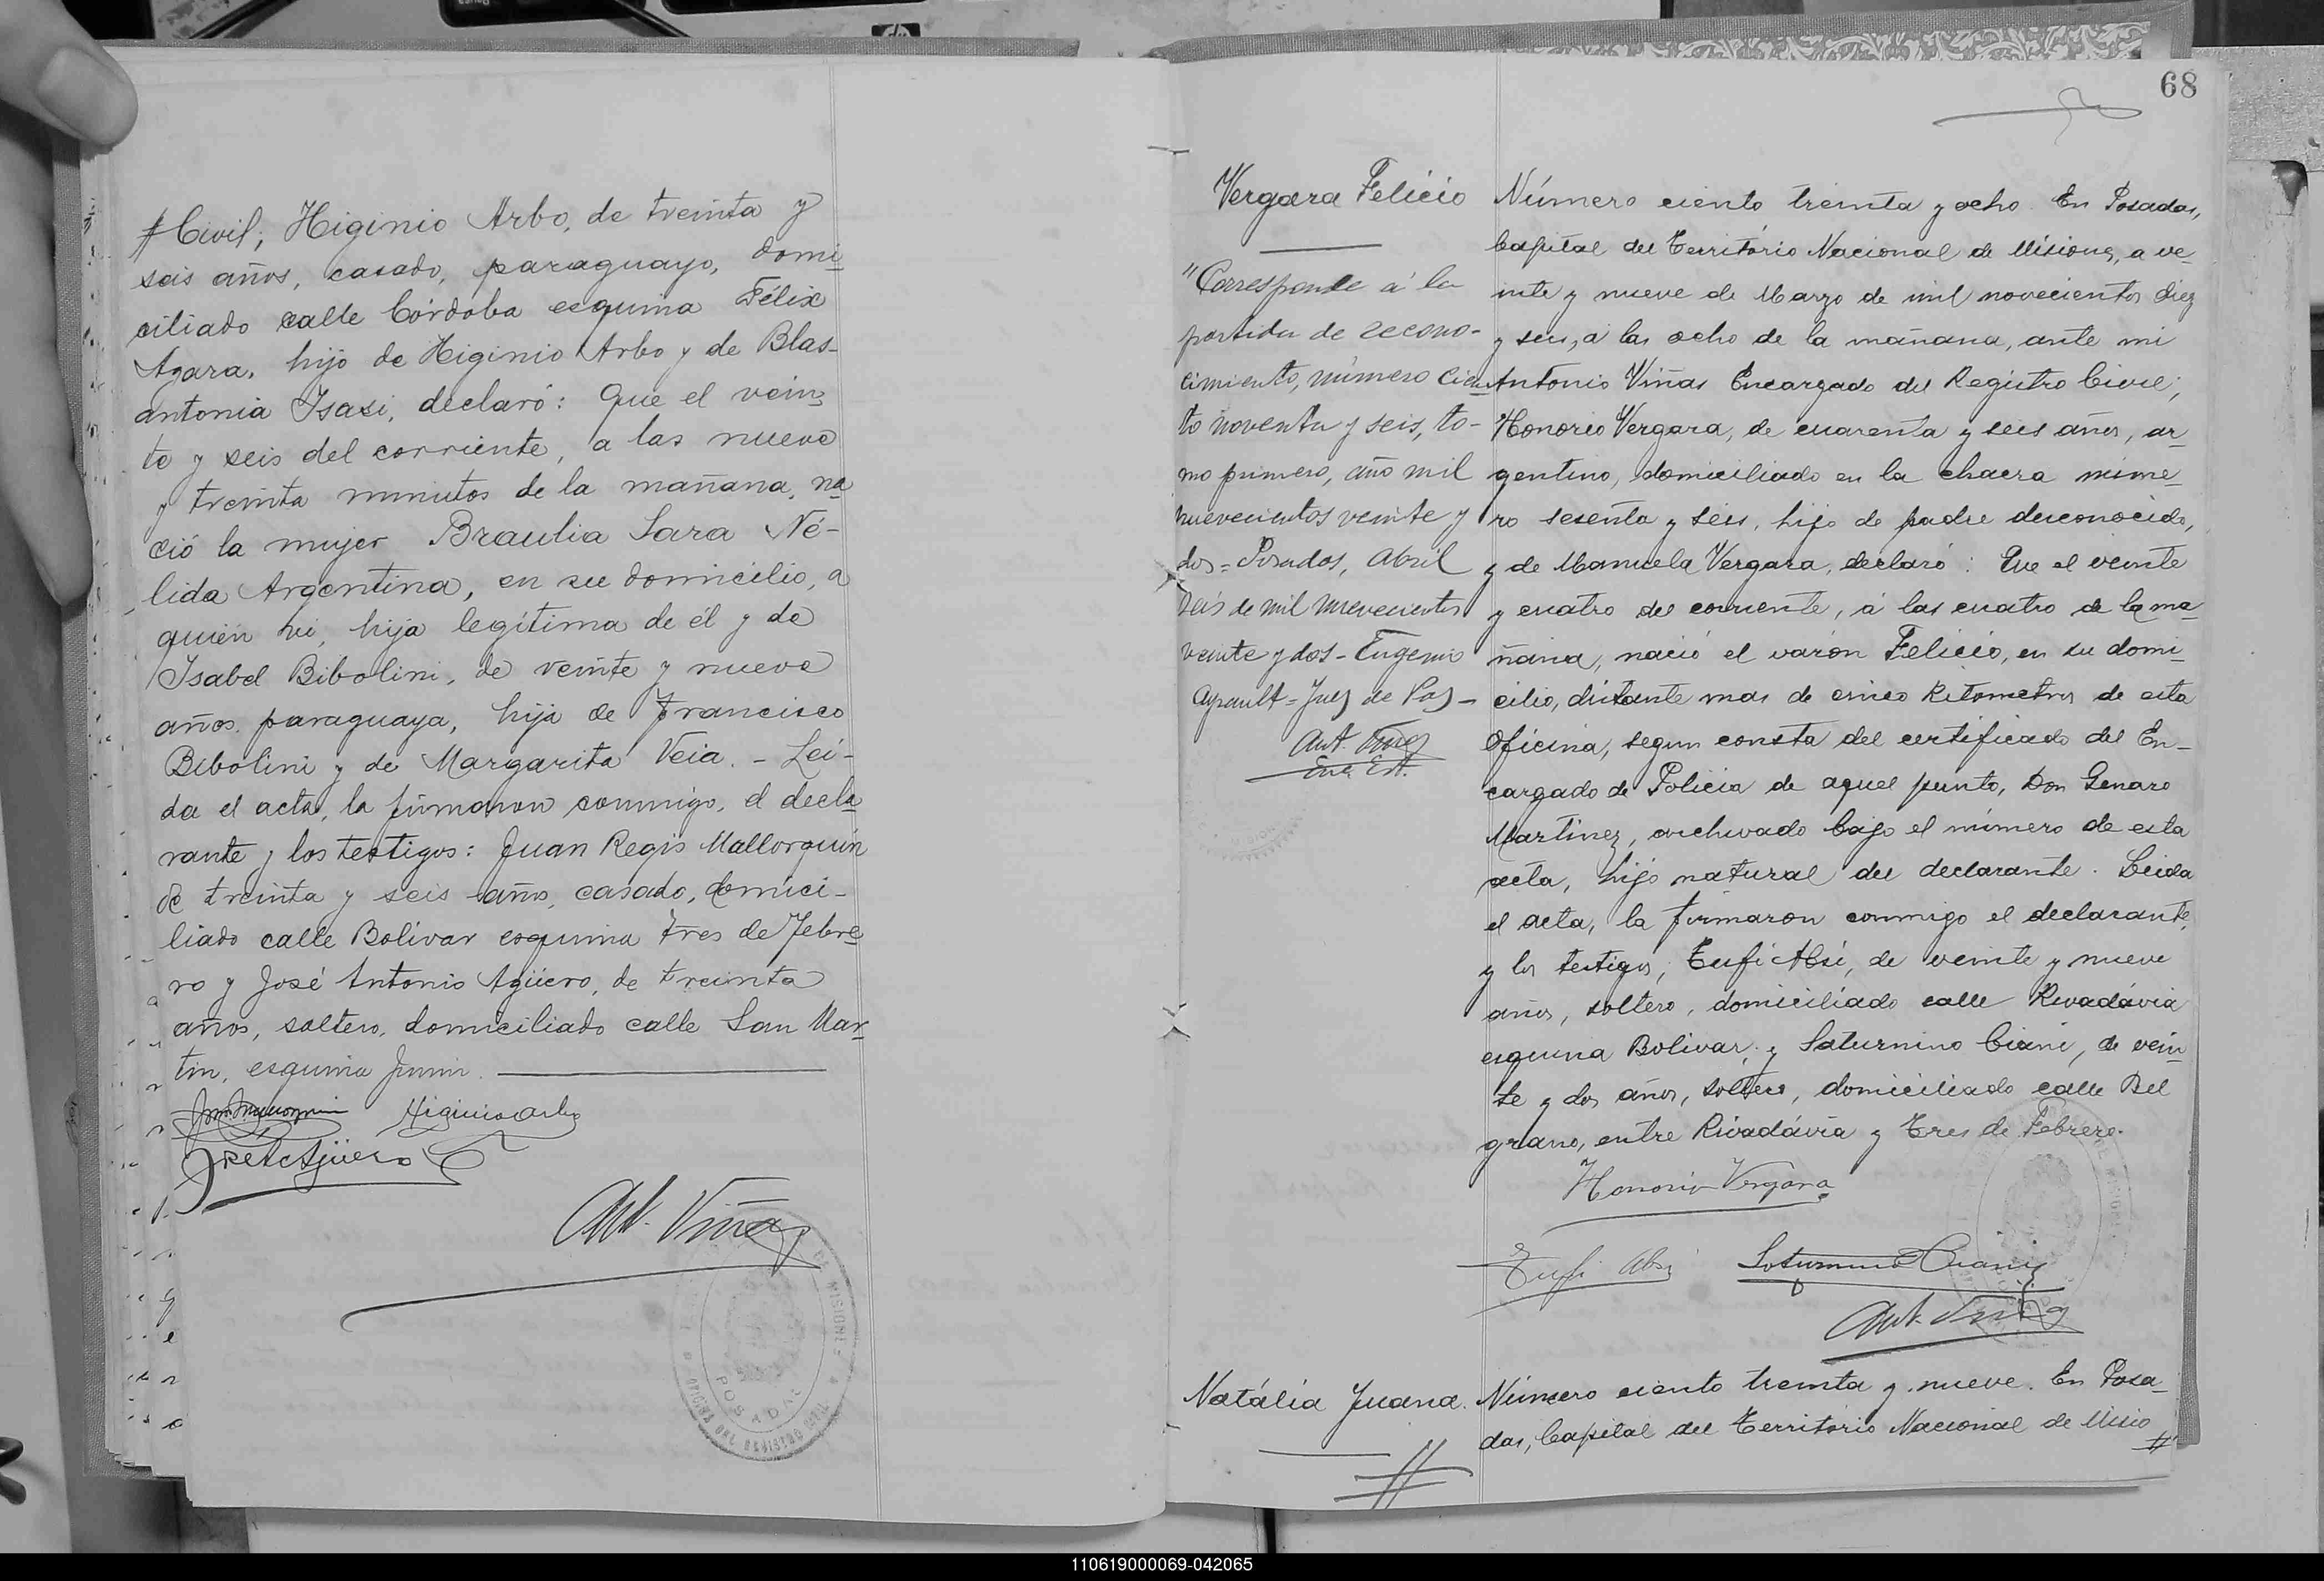 # Civil; Higinio Arbo, de treinta y
seis años, casado, paraguayo, domi-
ciliado calle Córdoba esquina Félix
Azara, hijo de Higinio Arbo y de Blas-
antonia Isasi, declaró: Que el vein-
te y seis del corriente, a las nueve
y treinta minutos de la mañana, na-
ció la mujer Braulia Sara Né-
lida Argentina, en su domicilio, a
quien vi, hija legítima de él y de
Isabel Bibolini, de veinte y nueve
años, paraguaya, hija de Francisco
Bibolini y de Margarita Veia. - Leí-
da el acta, la firmaron conmigo, el decla-
rante y los testigos: Juan Regis Mallorquín
de treinta y seis años, casado, domici-
liado calle Bolívar esquina Tres de Febre-
ro y José Antonio Agüero, de treinta
años, soltero, domiciliado calle San Mar-
tin, esquina Junin.
Higinio Arbo
José A Agüero
Ant. Viñas
OFICINA DEL REGISTRO CIVIL
POSADAS
MISIONES
68
Vergara Felicio
"Corresponde á la
partida de recono-
cimiento, número cien-
to noventa y seis, to-
mo primero, año mil
nuevecientos veinte y
dos = Posadas, Abril
seis de mil nuevecientos
veinte y dos - Eugenio
Ayrault = Juez de Paz -
Ant. Viñas
Enc. Est.
Número ciento treinta y ocho. En Posadas,
Capital del Território Nacional de Misiones, a ve-
inte y nueve de Marzo de mil novecientos diez
y seis, á las ocho de la mañana, ante mi
Antonio Viñas Encargado del Registro Civil;
Honorio Vergara, de cuarenta y seis años, ar-
gentino, domiciliado en la chacra núme-
ro sesenta y seis, hijo de padre desconocido,
y de Manuela Vergara, declaró: Que el veinte
y cuatro del corriente, á las cuatro de la ma-
ñana, nació el varón Felicio, en su domi-
cilio, distante mas de cinco Kilometros de esta
Oficina, segun consta del certificado del En-
cargado de Policia de aquel punto, Don Genaro
Martinez, archivado bajo el número de esta
acta, hijo natural del declarante. Leida
el acta, la firmaron conmigo el declarante,
y los testigos, Tufi Absi, de veinte y nueve
años, soltero, domiciliado calle Rivadávia
esquina Bolivar, y Saturnino Ciani, de vein-
te y dos años, soltero, domiciliado calle Bel
grano, entre Rivadávia y Tres de Febrero.
Honorio Vergara
Tufi Absi Saturnino Ciani
Ant. Viñas
Natália Juana.
Número ciento treinta y nueve. En Posa-
das, Capital del Território Nacional de Misio
#
110619000069-042065